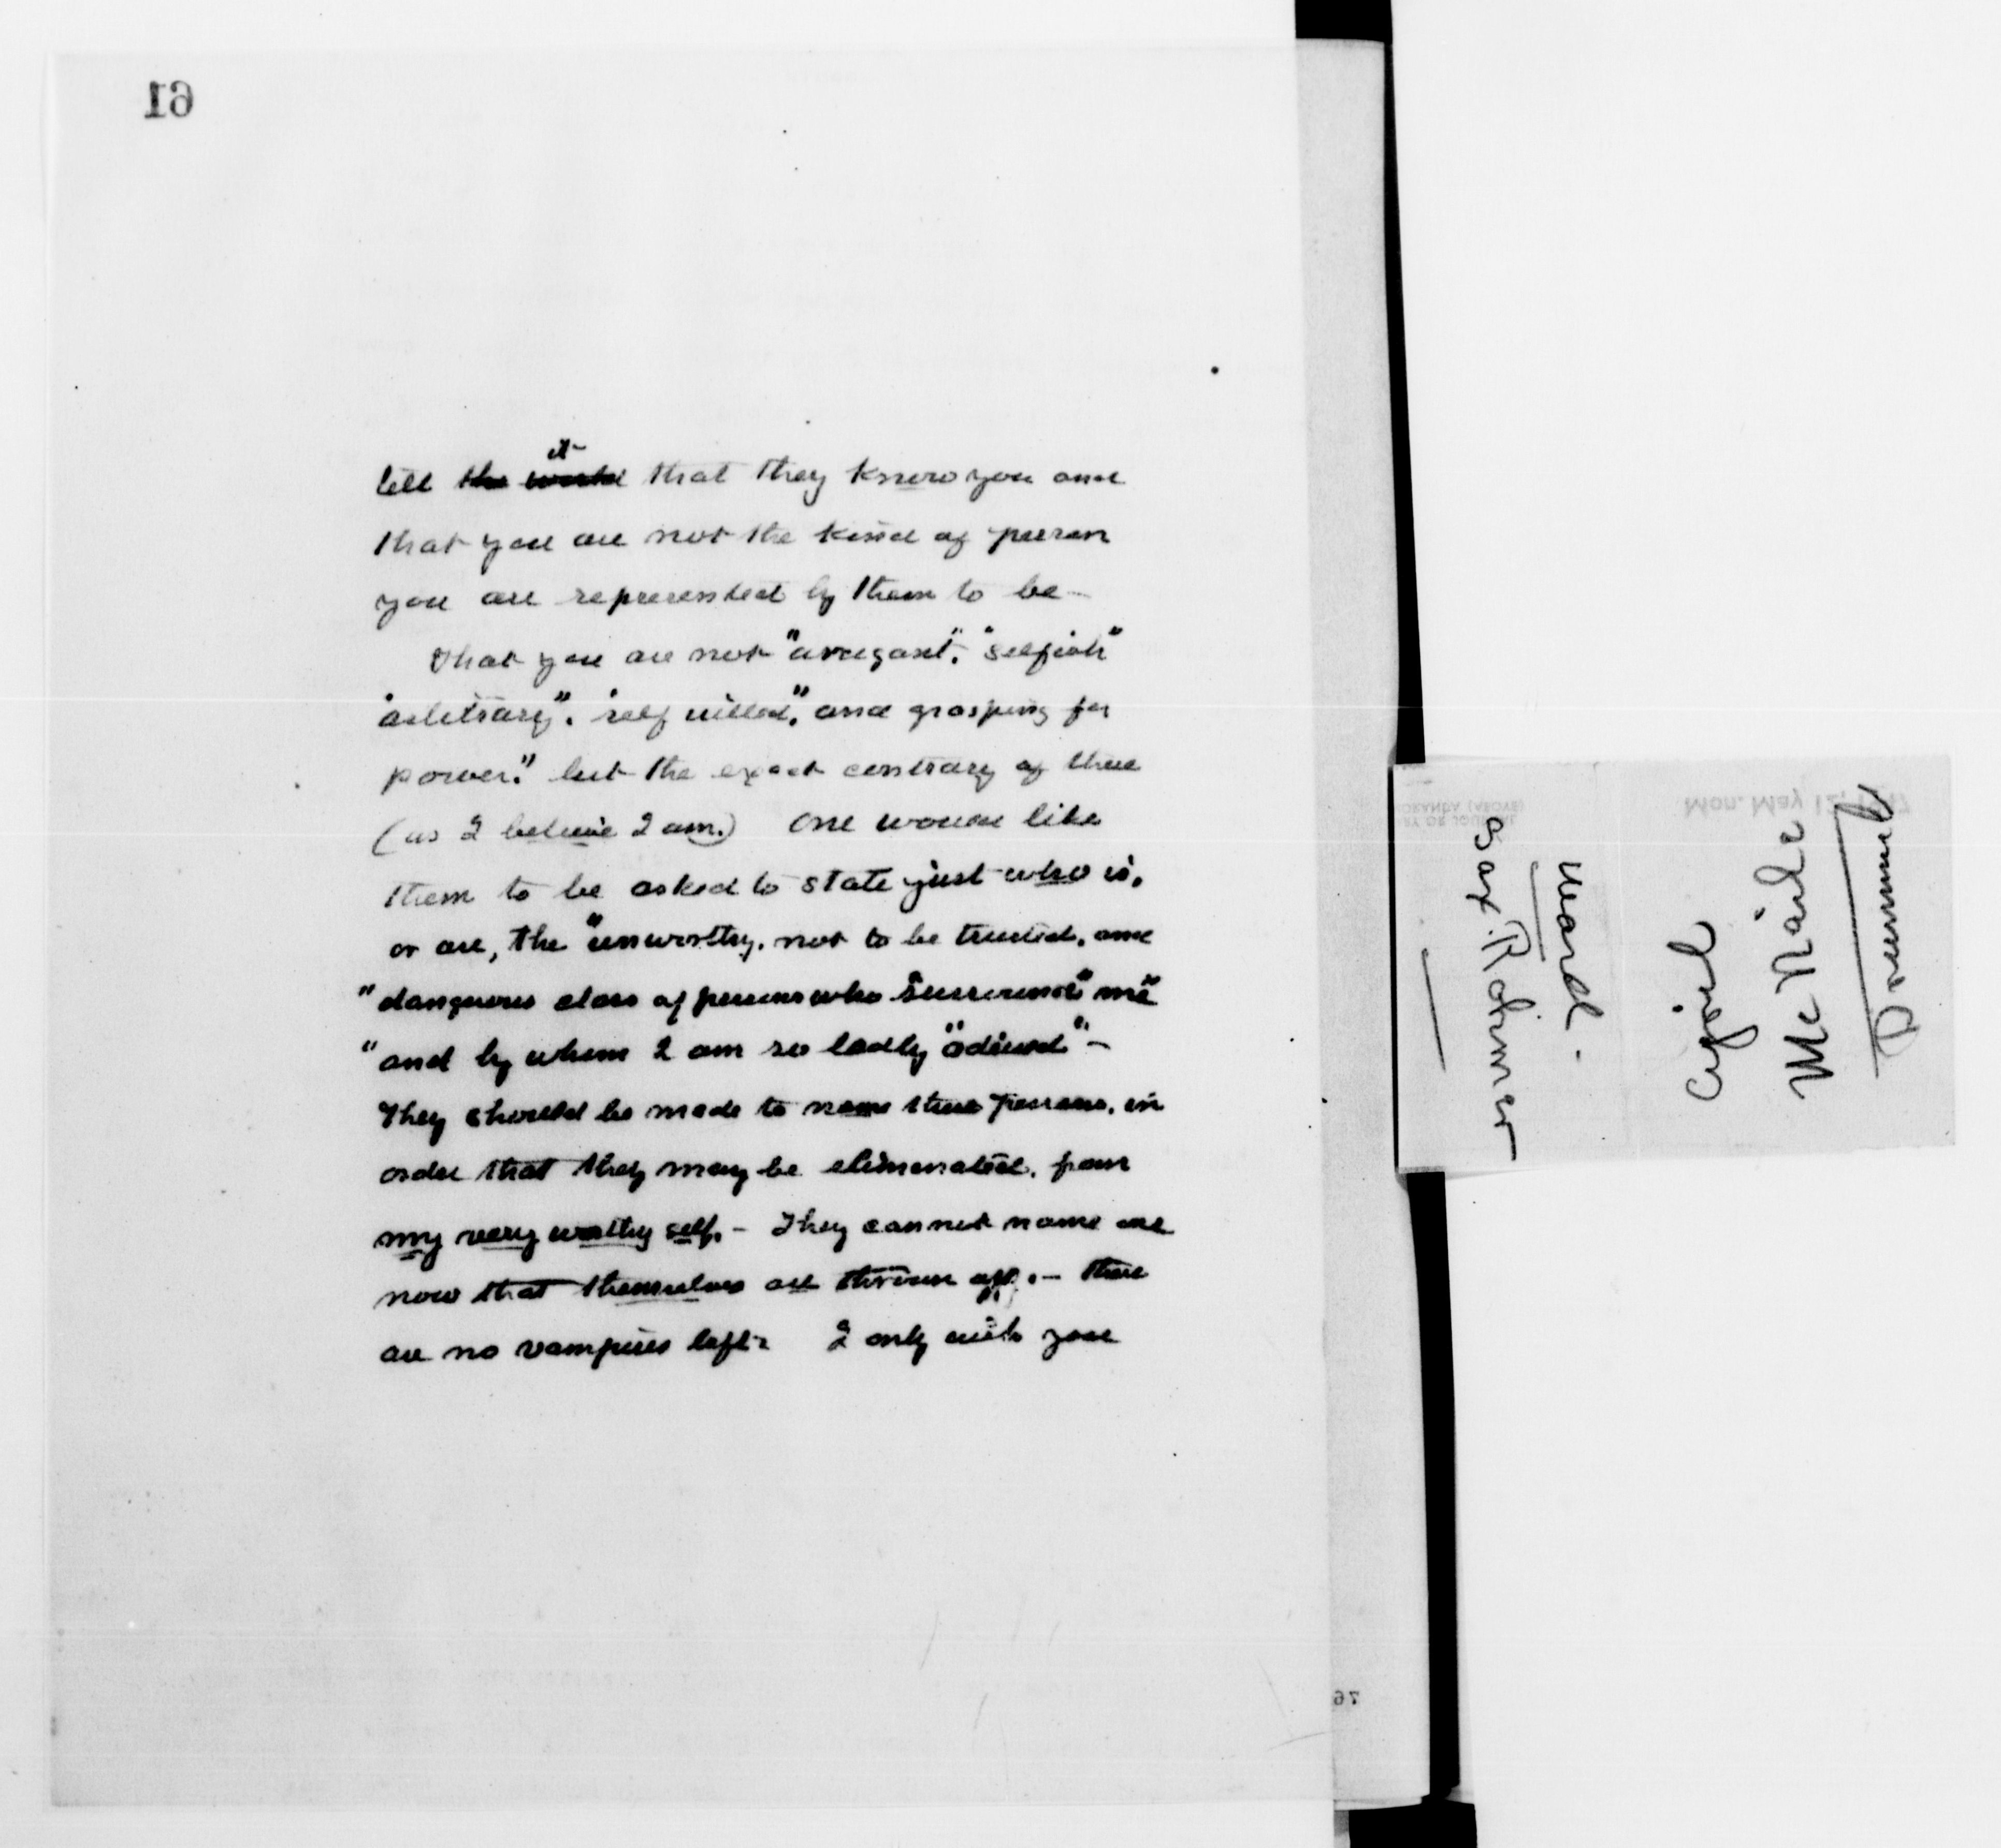 61
tell ~~the world~~ it that they know you and
that you are not the kind of person
you are represented by them to be -
that you are not "arrogant", "selfish"
"arbitrary", "self willed", and grasping for
power." but the exact contrary of these
(as I believe I am.) One would like
them to be asked to state just who is,
or are, the "unworthy, not to be trusted, and
"dangerous class of persons who "surround" me"
"and by whom I am so badly "advised" -
They should be made to name these persons, in
order that they may be eliminated, from
my very worthy self. - They cannot name one
now that themselves are thrown off. - there
are no vampires left - I only wish you
76
Mon. May 12, 1917
MORANDA (ABOVE)
RY OR JOURNAL
Ward.
Drummer